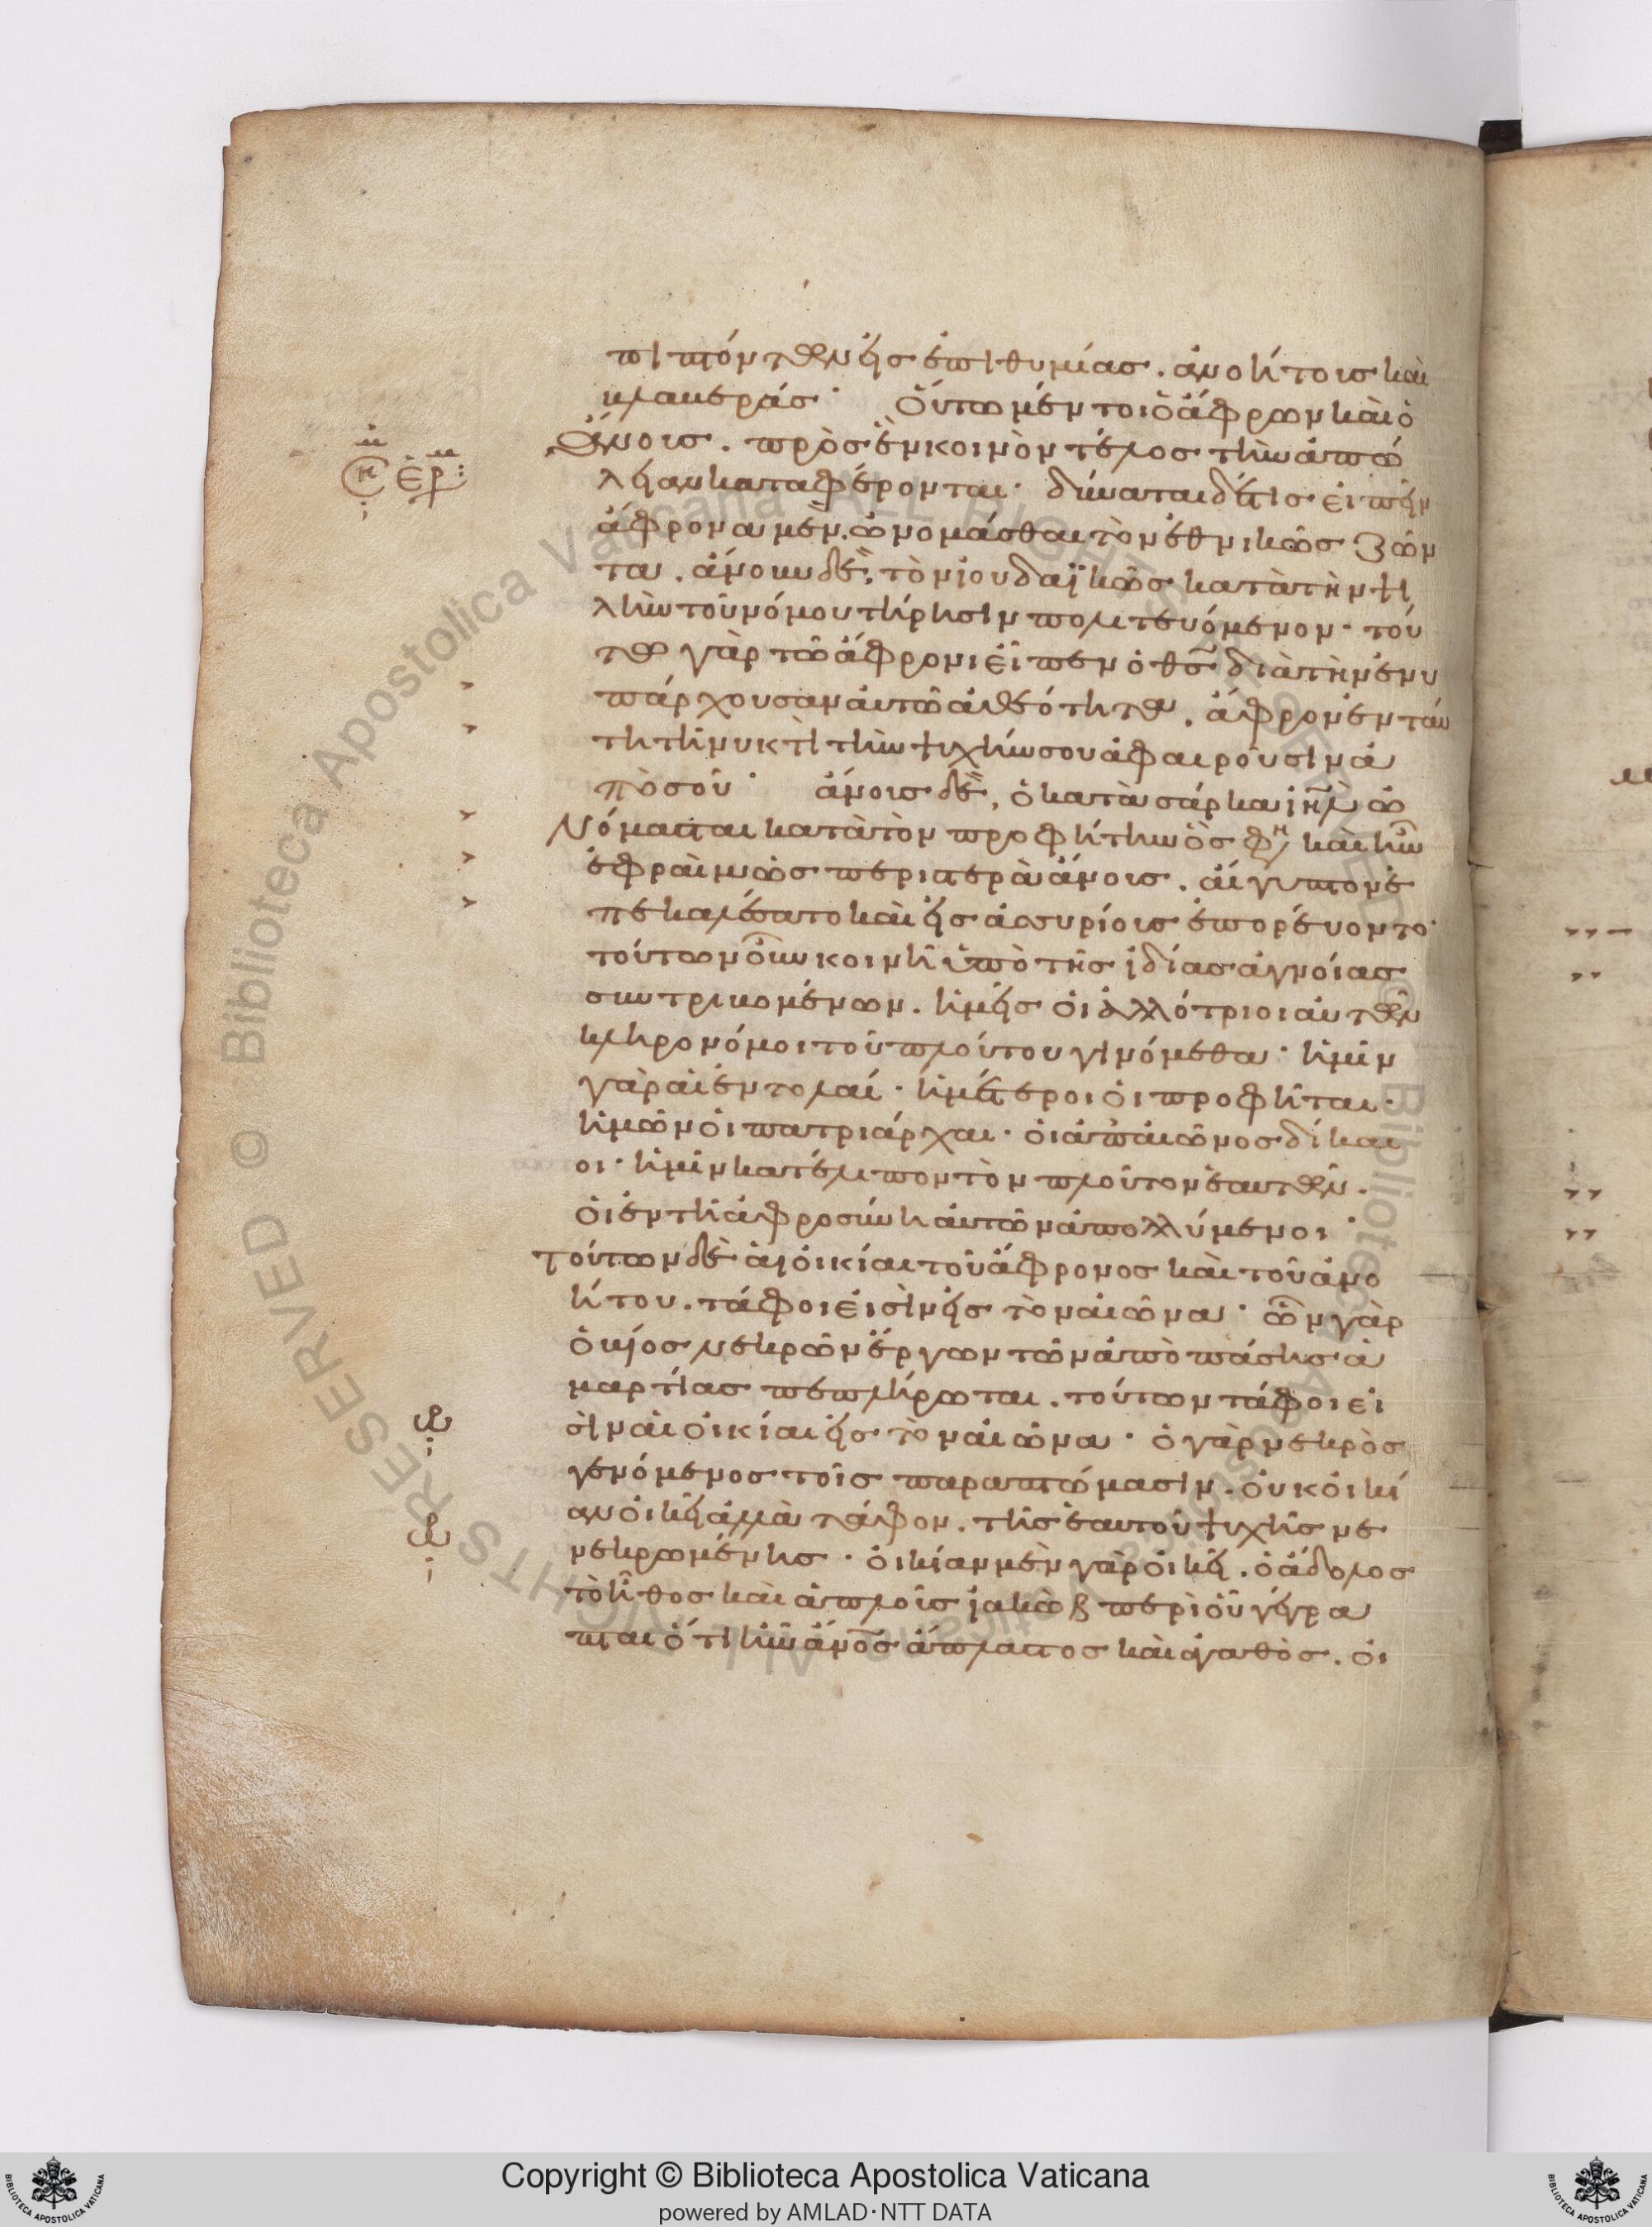 πιπτόντων εἰς ἐπιθυμίας. ἀνοήτους καὶ
βλαβεράς· Οὕτω μέντοι ὁ ἄφρων καὶ ὁ
ἄνους. πρὸς ἓν κοινὸν τέλος τὴν ἀπώ
λειαν καταφέρονται· δύναται δέ τις εἰπεῖν
ἄφρονα μὲν. ὠνομάσθαι τὸν ἐθνικῶς ζῶν
τα. ἄνουν δὲ. τὸν ἰουδαϊκῶς κατὰ τὴν ψι
λὴν τοῦ νόμου τήρησιν πολιτευόμενον· τού
τω γὰρ τῶ ἄφρονι εἶπεν ὁ θς διὰ τὴν ἐνυ
πάρχουσαν αὐτῶ ἀθεότητα. ἄφρον ἐν ταύ
τη τῆ νυκτὶ τὴν ψυχήν σου ἀφαιροῦσιν ἀ
πὸ σοῦ· ἄνους δὲ, ὁ κατὰ σάρκα ιηλ ὠ
νόμασται κατὰ τὸν προφήτην ὅς φη καὶ ἦν
ἐφραὶμ ὡς περιστερὰ ἄνους. αἴγυπτον ἐ
πεκαλέσατο καὶ εἰς ἀσσυρίους ἐπορεύοντο·
τούτων οὖν κοινῆ ὑπὸ τῆς ἰδίας ἀγνοίας
ἡμεῖς οἱ ἀλλότριοι αὐτῶν
κληρονόμοι τοῦ πλούτου γινόμεθα· ἡμῖν
γὰρ αἱ ἐντολαί· ἡμέτεροι οἱ προφῆται·
ἡμῶν οἱ πατριάρχαι· οἱ ἀπ' αἰῶνος δίκαι
οι· ἡμῖν κατέλιπον τὸν πλοῦτον ἑαυτῶν.
οἱ ἐν τῆ ἀφροσύνη αὐτῶν ἀπολλύμενοι·
τούτων δὲ αἱ οἰκίαι τοῦ ἄφρονος καὶ τοῦ ἀνο
ήτου. τάφοι εἰσὶν εἰς τὸν αἰῶνα· ὧν γὰρ
ὁ βίος νεκρῶν ἔργων τῶν ἀπὸ πάσης ἁ
μαρτίας πεπλήρωται. τούτων τάφοι εἰ
σὶν αἱ οἰκίαι εἰς τὸν αἰῶνα· ὁ γὰρ νεκρὸς
γενόμενος τοῖς παραπτώμασιν. οὐκ οἰκί
αν οἰκεῖ ἀλλὰ τάφον. τῆς ἑαυτοῦ ψυχῆς νε
νεκρωμένης· οἰκίαν μὲν γὰρ οἰκεῖ. ὁ ἄδολος
τὸ ἦθος καὶ ἁπλοῦς ἰακὼβ περὶ οὗ γέγρα
πται ὅτι ἦν ἄνος ἄπλαστος καὶ ἀγαθὸς. οἱ
Copyright © Biblioteca Apostolica Vaticana
powered by AMLAD·NTT DATA